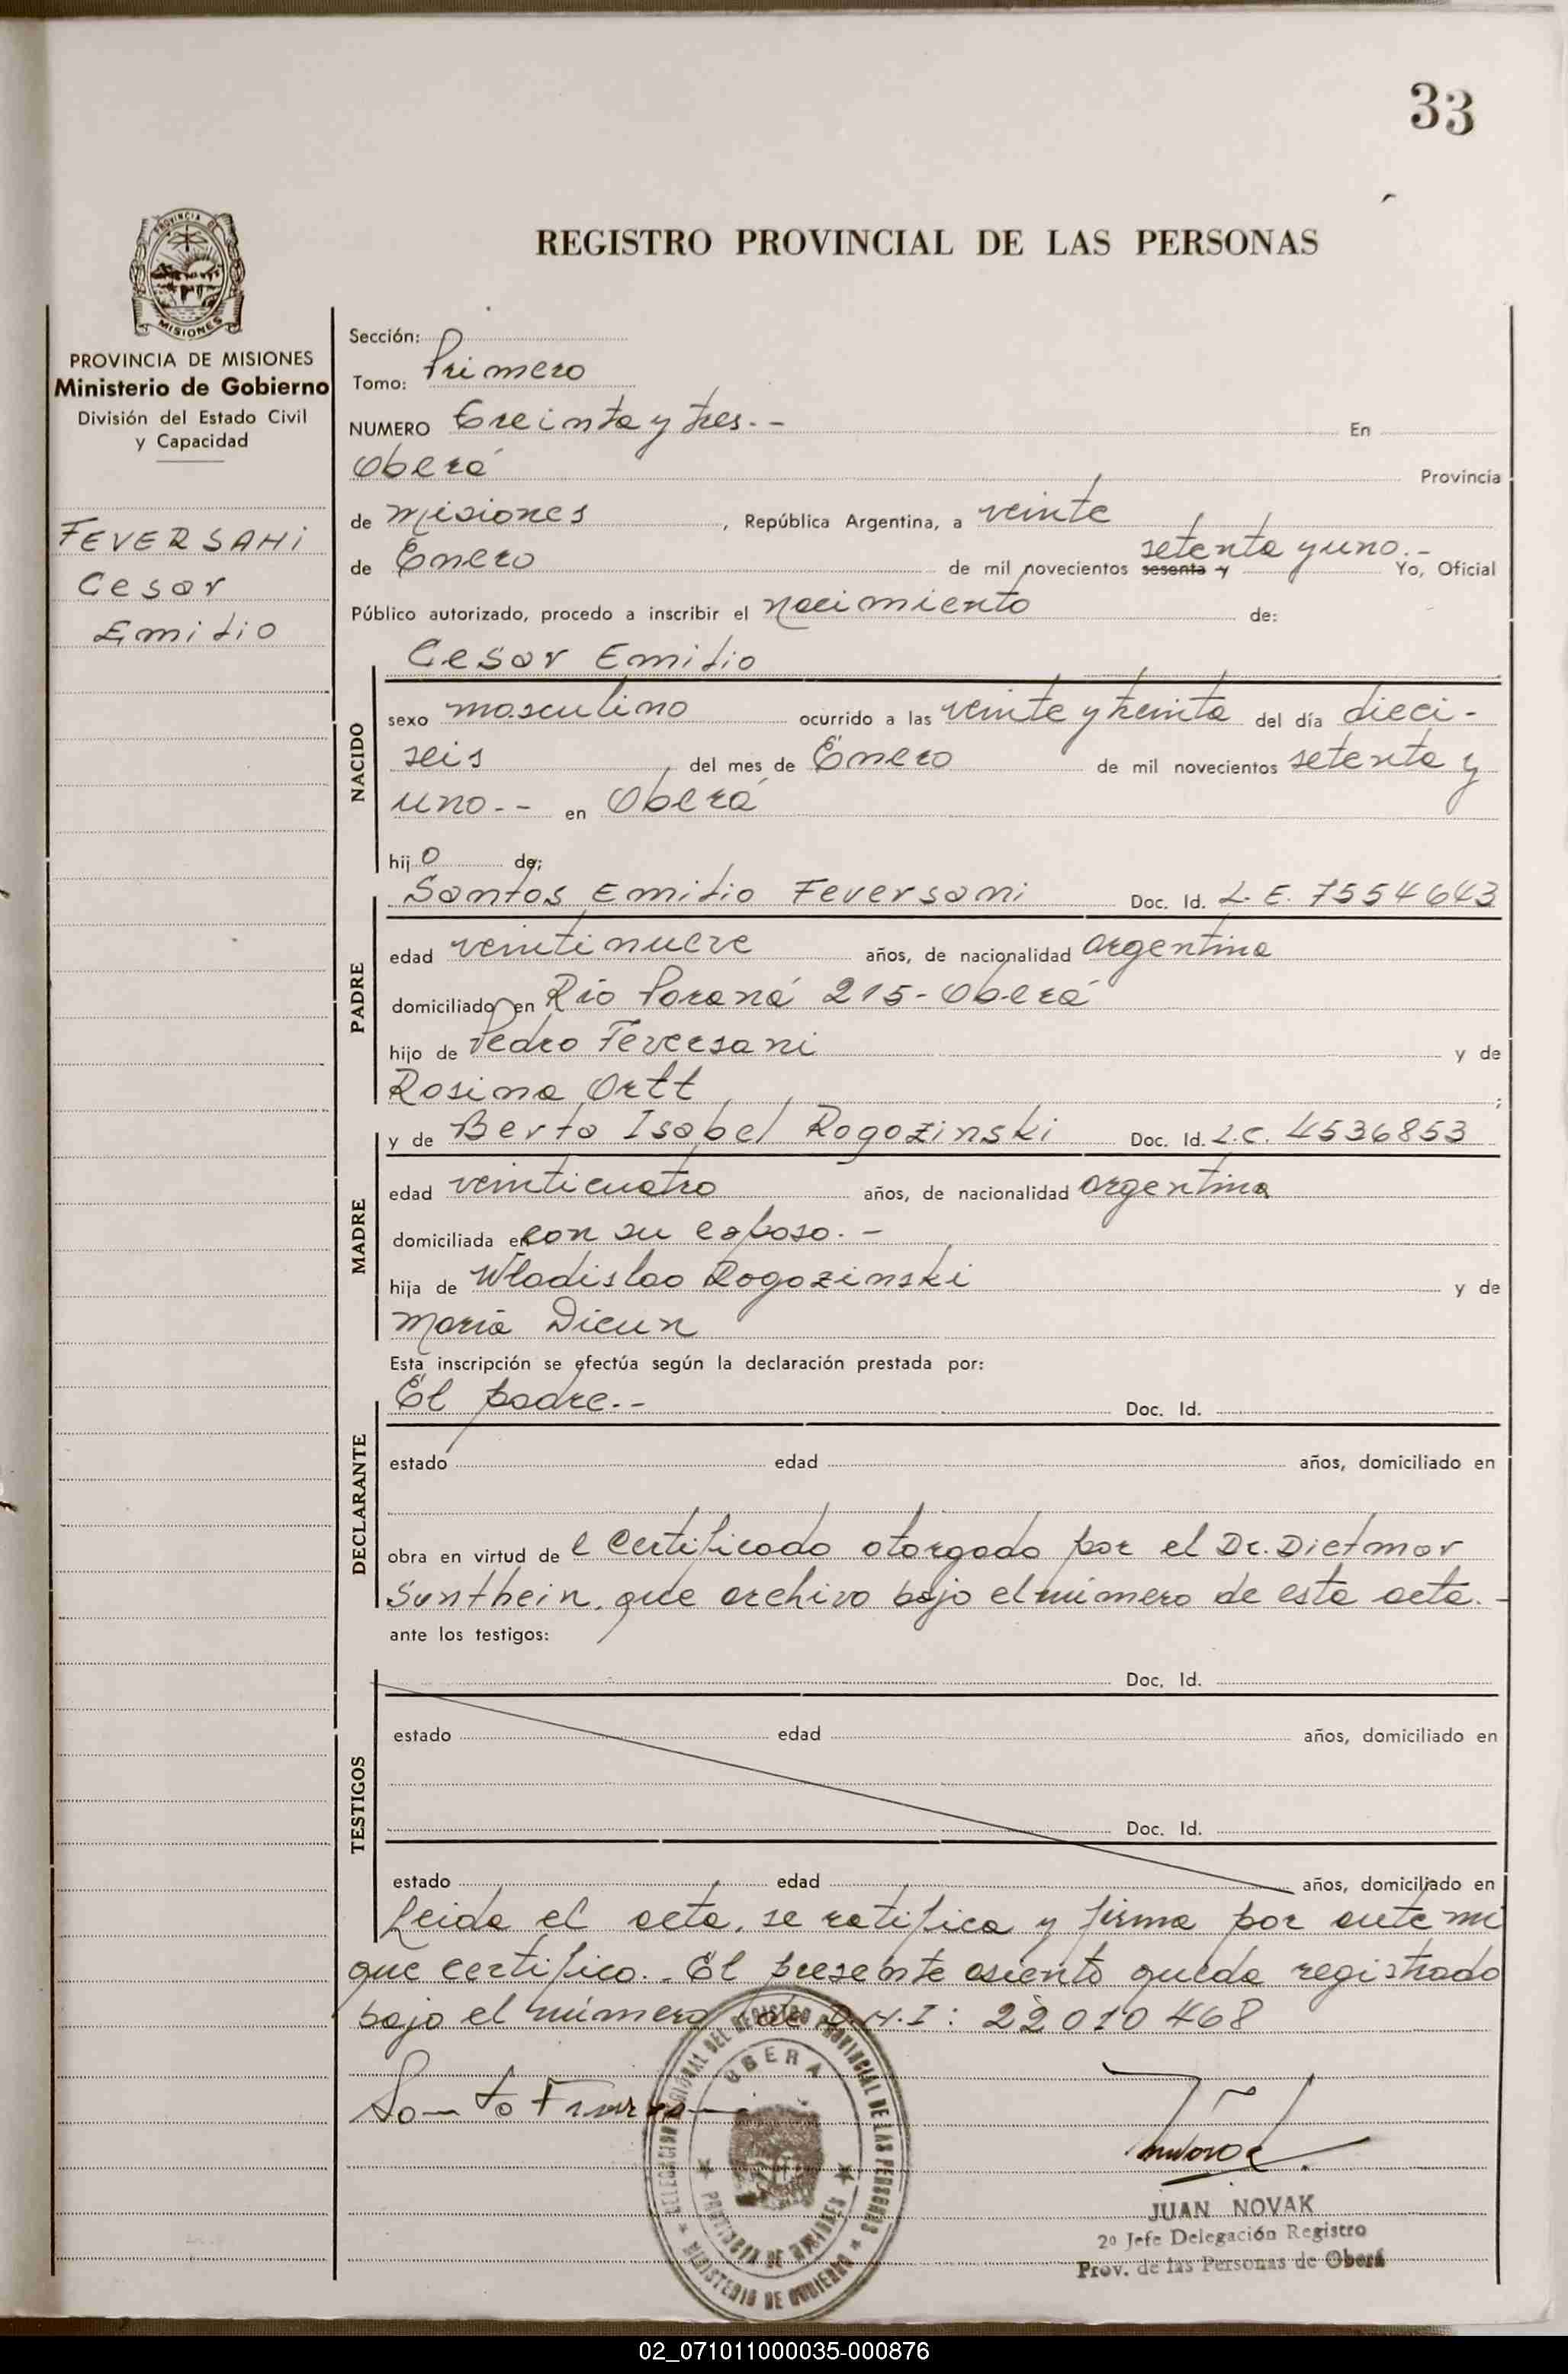 33
REGISTRO PROVINCIAL DE LAS PERSONAS
PROVINCIA DE MISIONES
PROVINCIA DE MISIONES
Ministerio de Gobierno
División del Estado Civil
y Capacidad
FEVERSANI
Cesar
Emilio
Sección:
Tomo: Primero
NUMERO Treinta y tres.- En
Oberá Provincia
de Misiones, República Argentina, a veinte
de Enero de mil novecientos sesenta y setenta y uno.- Yo, Oficial
Público autorizado, procedo a inscribir el nacimiento de:
Cesar Emilio
NACIDO
sexo masculino ocurrido a las veinte y treinta del día dieci-
seis del mes de Enero de mil novecientos setenta y
uno.-- en Oberá
hijo de;
PADRE
Santos Emilio Feversani Doc. Id. L.E. 7554643
edad veintinueve años, de nacionalidad argentina
domiciliado en Río Paraná 215-Oberá
hijo de Pedro Feversani y de
Rosina Ortt;
MADRE
y de Berta Isabel Rogozinski Doc. Id. L.C. 4536853
edad veinticuatro años, de nacionalidad argentina
domiciliada en con su esposo.-
hija de Wladislao Rogozinski y de
María Dicun
Esta inscripción se efectúa según la declaración prestada por:
DECLARANTE
El padre.-- Doc. Id.
estado edad años, domiciliado en
obra en virtud de l certificado otorgado por el Dr. Dietmar
Sunthein, que archivo bajo el número de esta acta.-
ante los testigos:
TESTIGOS
Doc. Id.
estado edad años, domiciliado en
Doc. Id.
estado edad años, domiciliado en
Leida el acta, se ratifica y firma por ante mi
que certifico.- El presente asiento queda registrado
bajo el número de D.N.I: 22010468
DELEGACION REGIONAL DEL REGISTRO PROVINCIAL DE LAS PERSONAS
OBERA
PROVINCIA DE MISIONES
MINISTERIO DE GOBIERNO
JUAN NOVAK
2º Jefe Delegación Registro
Prov. de las Personas de Oberá
02_071011000035-000876